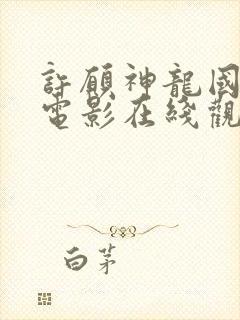 許願神龍國
電影在綫觀
白茅